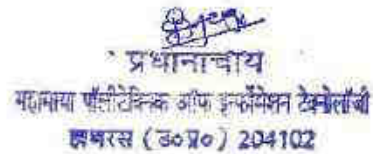 प्रधानाचार्य
महामाया पॉलीटेक्निक ऑफ इन्फॉर्मेशन टेक्नोलॉजी
हाथरस (उ०प्र०) 204102